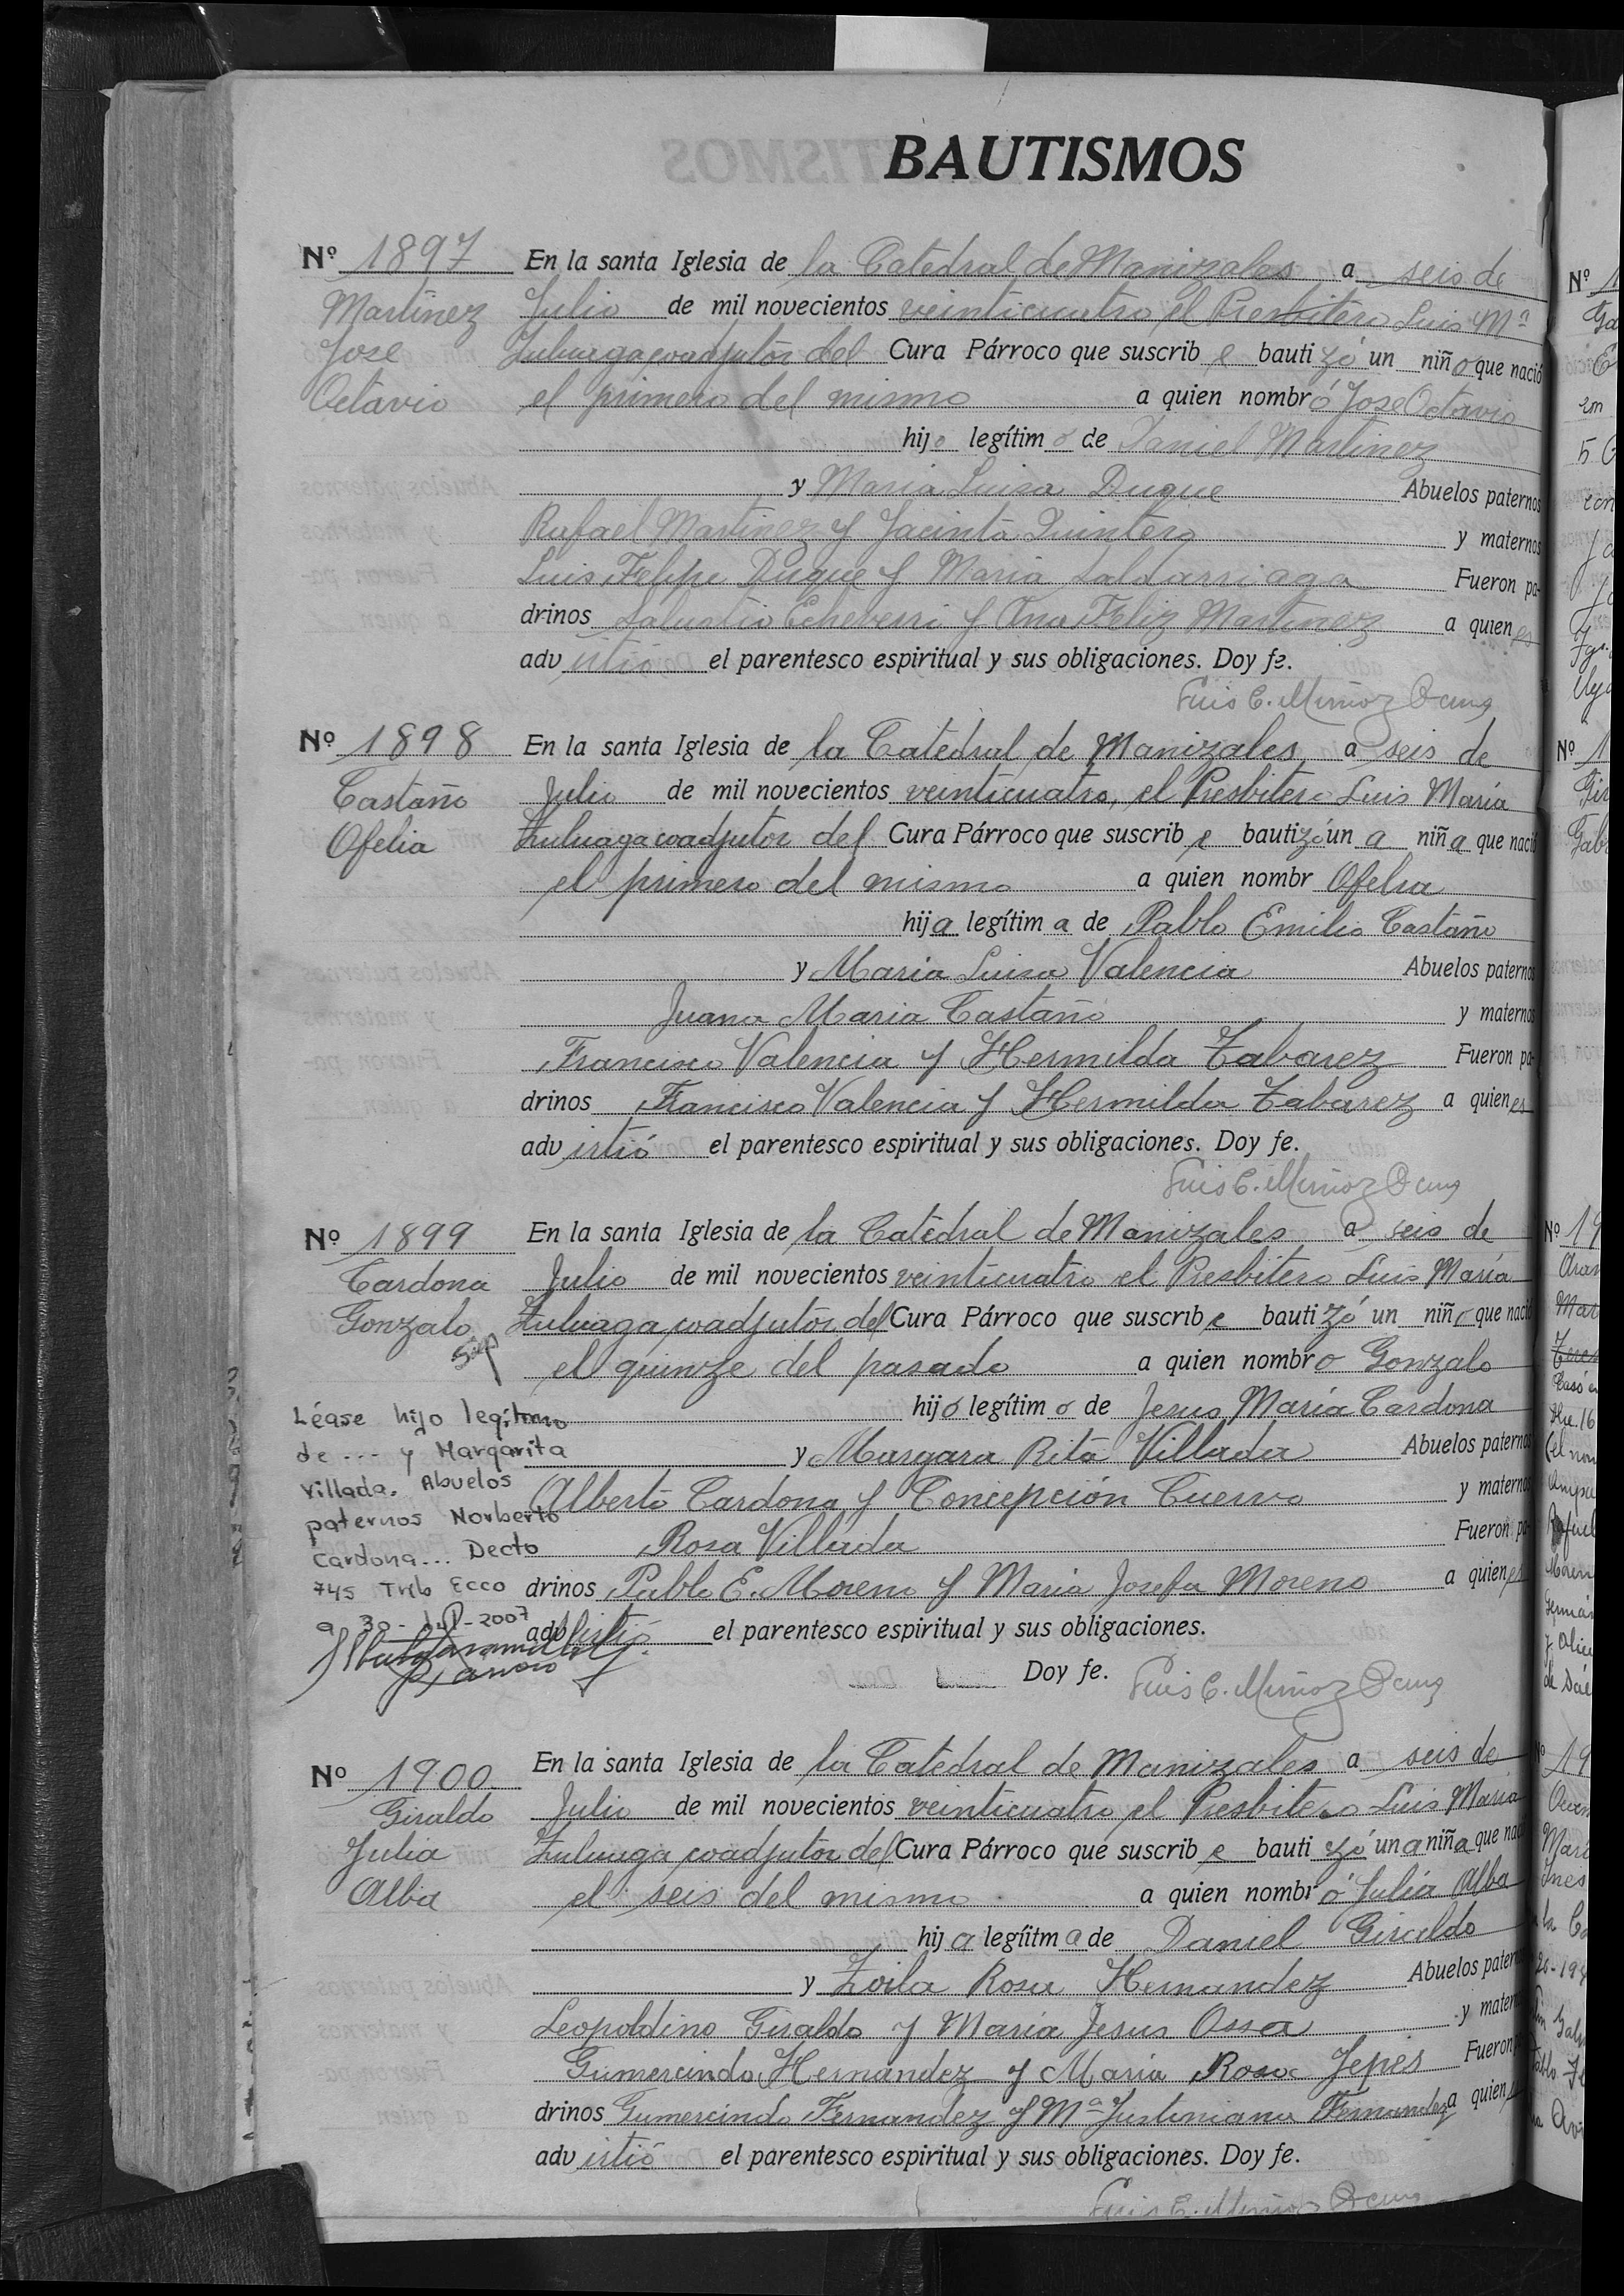 BAUTISMOS
Nº 1897
Martinez
Jose
Octavio
En la santa Iglesia de la Catedral de Manizales a seis de
Julio de mil novecientos veinticuatro el Presbitero Luis Mª
Zuluaga coadjutor del Cura Párroco que suscrib e bauti zó un niñ o que nació
el primero del mismo a quien nombr ó Jose Octavio
hijo legítim o de Daniel Martinez
y Maria Luisa Duque Abuelos paternos
Rafael Martinez y Jacinta Quintero y maternos
Luis Felipe Duque y Maria Saldarriaga Fueron pa-
drinos Salustio Echeverri y Ana Feliz Martinez a quien es
adv irtió el parentesco espiritual y sus obligaciones. Doy fe.
Luis C. Muñoz
Nº 1898
Castaño
Ofelia
En la santa Iglesia de la Catedral de Manizales a seis de
Julio de mil novecientos veinticuatro, el Presbitero Luis María
Zuluaga coadjutor del Cura Párroco que suscrib e bautizó un a niñ a que nació
el primero del mismo a quien nombr Ofelia
hija legítim a de Pablo Emilio Castaño
y Maria Luisa Valencia Abuelos paternos
Juana Maria Castaño y maternos
Francisco Valencia y Hermilda Tabarez Fueron pa-
drinos Francisco Valencia y Hermilda Tabarez a quien es
adv irtió el parentesco espiritual y sus obligaciones. Doy fe.
Luis C. Muñoz
Nº 1899
Cardona
Gonzalo
Léase hijo legítimo
de --- y Margarita
Villada. Abuelos
paternos Norberto
Cardona... Decto
745 Trib Ecco
a 30 - Jul - 2007
Párroco
En la santa Iglesia de la Catedral de Manizales a seis de
Julio de mil novecientos veinticuatro el Presbitero Luis María
Zuluaga coadjutor del Cura Párroco que suscrib e bauti zó un niñ o que nació
el quinze del pasado a quien nombr o Gonzalo
hijo legítim o de Jesus María Cardona
y Margara Rita Villada Abuelos paternos
Alberto Cardona y Concepción Cuervo y maternos
Rosa Villada Fueron pa-
drinos Pablo E. Moreno y Maria Josefa Moreno a quien es
adv irtió el parentesco espiritual y sus obligaciones.
Doy fe. Luis C. Muñoz
Nº 1900
Giraldo
Julia
Alba
En la santa Iglesia de la Catedral de Manizales a seis de
Julio de mil novecientos veinticuatro el Presbitero Luis María
Zuluaga coadjutor del Cura Párroco que suscrib e bauti zó un a niña que nació
el seis del mismo a quien nombr ó Julia Alba
hij a legíitm a de Daniel Giraldo
y Zoila Rosa Hernandez Abuelos paternos
Leopoldino Giraldo y Maria Jesus Ossa y maternos
Gumercindo Hernandez y Maria Rosa Jepes Fueron
drinos Gumercindo Fernandez y Mª Justiniana Fernandez a quien
adv irtió el parentesco espiritual y sus obligaciones. Doy fe.
Luis C. Muñoz